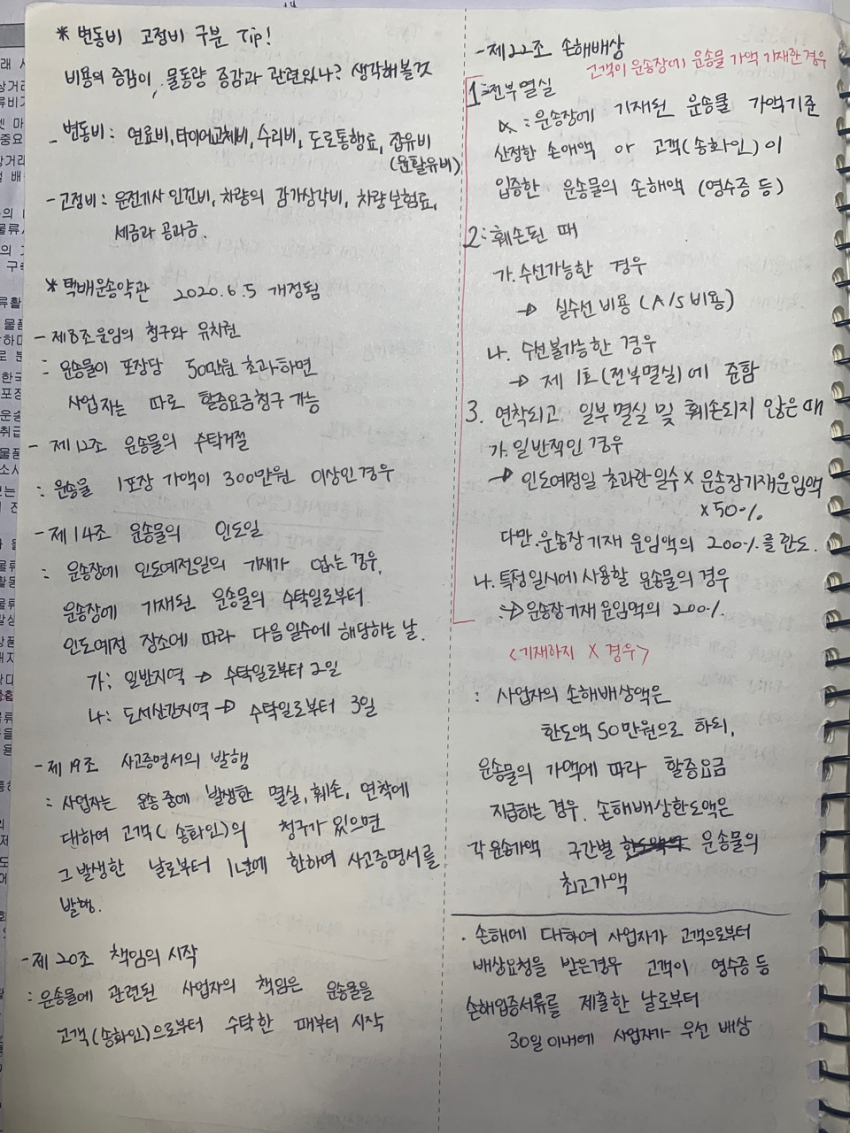 * 변동비 고정비 구분 Tip!
비용의 증감이, 물동량 증감과 관련있나? 생각해볼것
- 변동비 : 연료비, 타이어교체비, 수리비, 도로통행료, 잡유비
(윤활유비)
- 고정비 : 운전기사 인건비, 차량의 감가상각비, 차량보험료,
세금과 공과금.
* 택배운송약관 2020.6.5 개정됨
- 제8조 운임의 청구와 유치권
: 운송물이 포장당 50만원 초과하면
사업자는 따로 할증요금청구 가능
- 제12조 운송물의 수탁거절
: 운송물 1포장 가액이 300만원 이상인 경우
- 제14조 운송물의 인도일
: 운송장에 인도예정일의 기재가 없는 경우,
운송장에 기재된 운송물의 수탁일로부터
인도예정 장소에 따라 다음 일수에 해당하는 날.
가: 일반지역 → 수탁일로부터 2일
나: 도서산간지역 → 수탁일로부터 3일
- 제19조 사고증명서의 발행
: 사업자는 운송중에 발생한 멸실, 훼손, 연착에
대하여 고객(송화인)의 청구가 있으면
그 발생한 날로부터 1년에 한하여 사고증명서를
발행.
- 제20조 책임의 시작
: 운송물에 관련된 사업자의 책임은 운송물을
고객(송화인)으로부터 수탁한 때부터 시작
- 제22조 손해배상
고객이 운송장에 운송물 가액 기재한 경우
1: 전부멸실
: 운송장에 기재된 운송물 가액기준
산정한 손해액 or 고객(송화인)이
입증한 운송물의 손해액 (영수증 등)
2: 훼손된 때
가. 수선가능한 경우
→ 실수선 비용 (A/S 비용)
나. 수선불가능한 경우
→ 제 1호(전부멸실)에 준함
3. 연착되고 일부멸실 및 훼손되지 않은 때
가. 일반적인 경우
→ 인도예정일 초과한 일수 × 운송장기재운임액
×50%
다만, 운송장기재 운임액의 200%를 한도.
나. 특정일시에 사용할 운송물의 경우
:→ 운송장기재 운임액의 200%
<기재하지 X 경우>
: 사업자의 손해배상액은
한도액 50만원으로 하되,
운송물의 가액에 따라 할증요금
지급하는 경우, 손해배상한도액은
각 운송가액 구간별 운송물의
최고가액
· 손해에 대하여 사업자가 고객으로부터
배상요청을 받은경우 고객이 영수증 등
손해입증서류를 제출한 날로부터
30일 이내에 사업자가 우선 배상